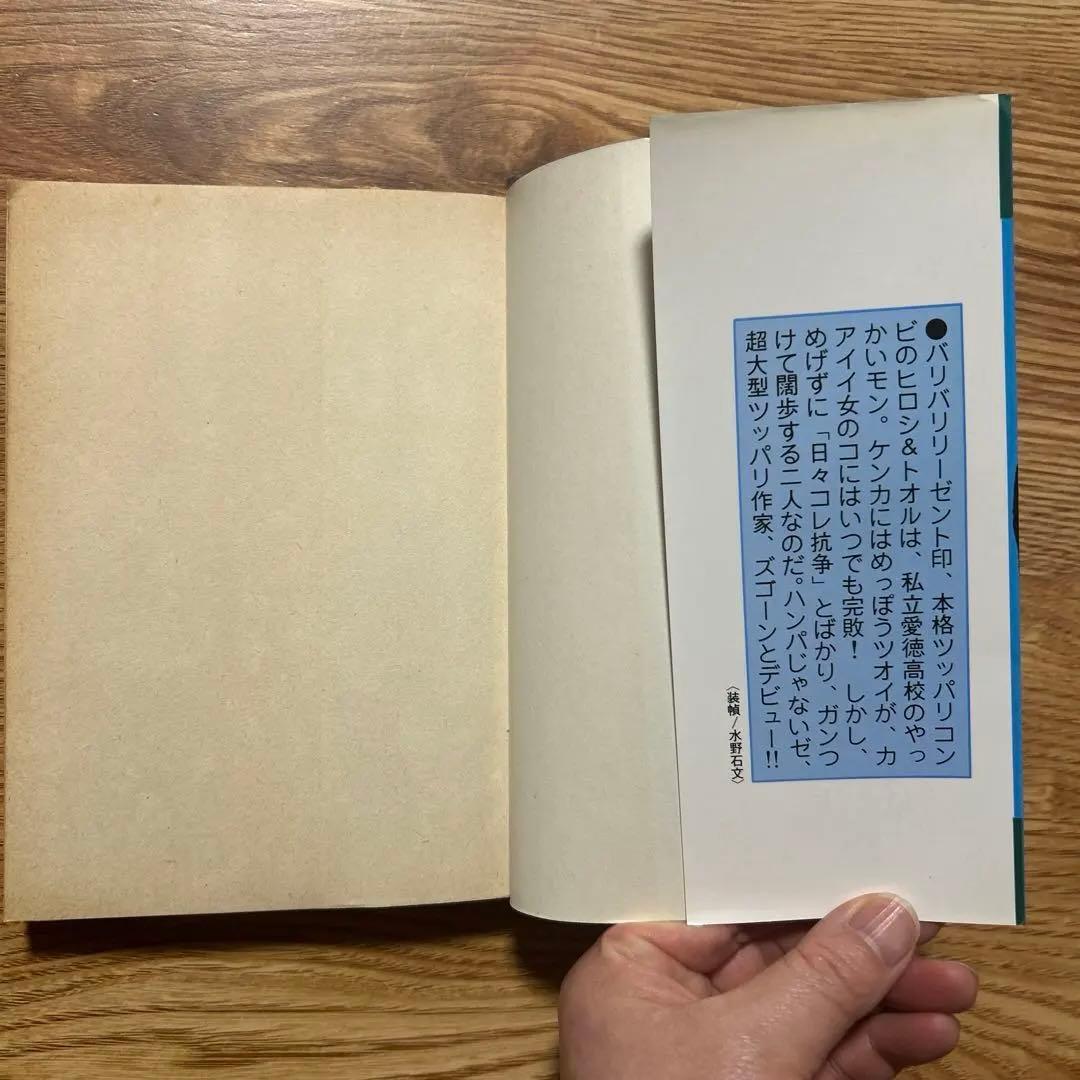 ●バリバリリーゼント印、本格ツッパリコン
ビのヒロシ&トオルは、私立愛徳高校のやっ
かいモン。ケンカにはめっぽうツオイが、カ
アイイ女のコにはいつでも完敗！　しかし、
めげずに「日々コレ抗争」とばかり、ガンつ
けて闊歩する二人なのだ。ハンパじゃないゼ、
超大型ツッパリ作家、ズゴーンとデビュー!!
〈装幀/水野石文〉